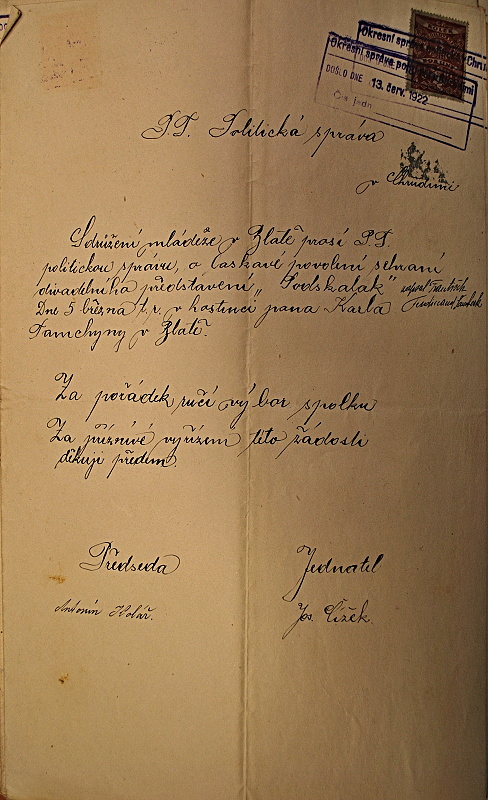 Okresní správa
Okresní správa
DOŠLO DNE 13. červ. 1922
P.T. Politická správa
v Chrudimi
Sdružení mládeže v Zlatě prosí P.T.
politickou správu, o laskavé povolení sehraní
divadelního představení „Podskalák"
Dne 5 března t.r. v hostinci pana Karla
Famchyny v Zlatě.
Za pořádek ručí výbor spolku
Za příznivé vyřízení této žádosti
děkuji předem.
Předseda
Jednatel
Antonín Kolář.
Jos. Čížek.